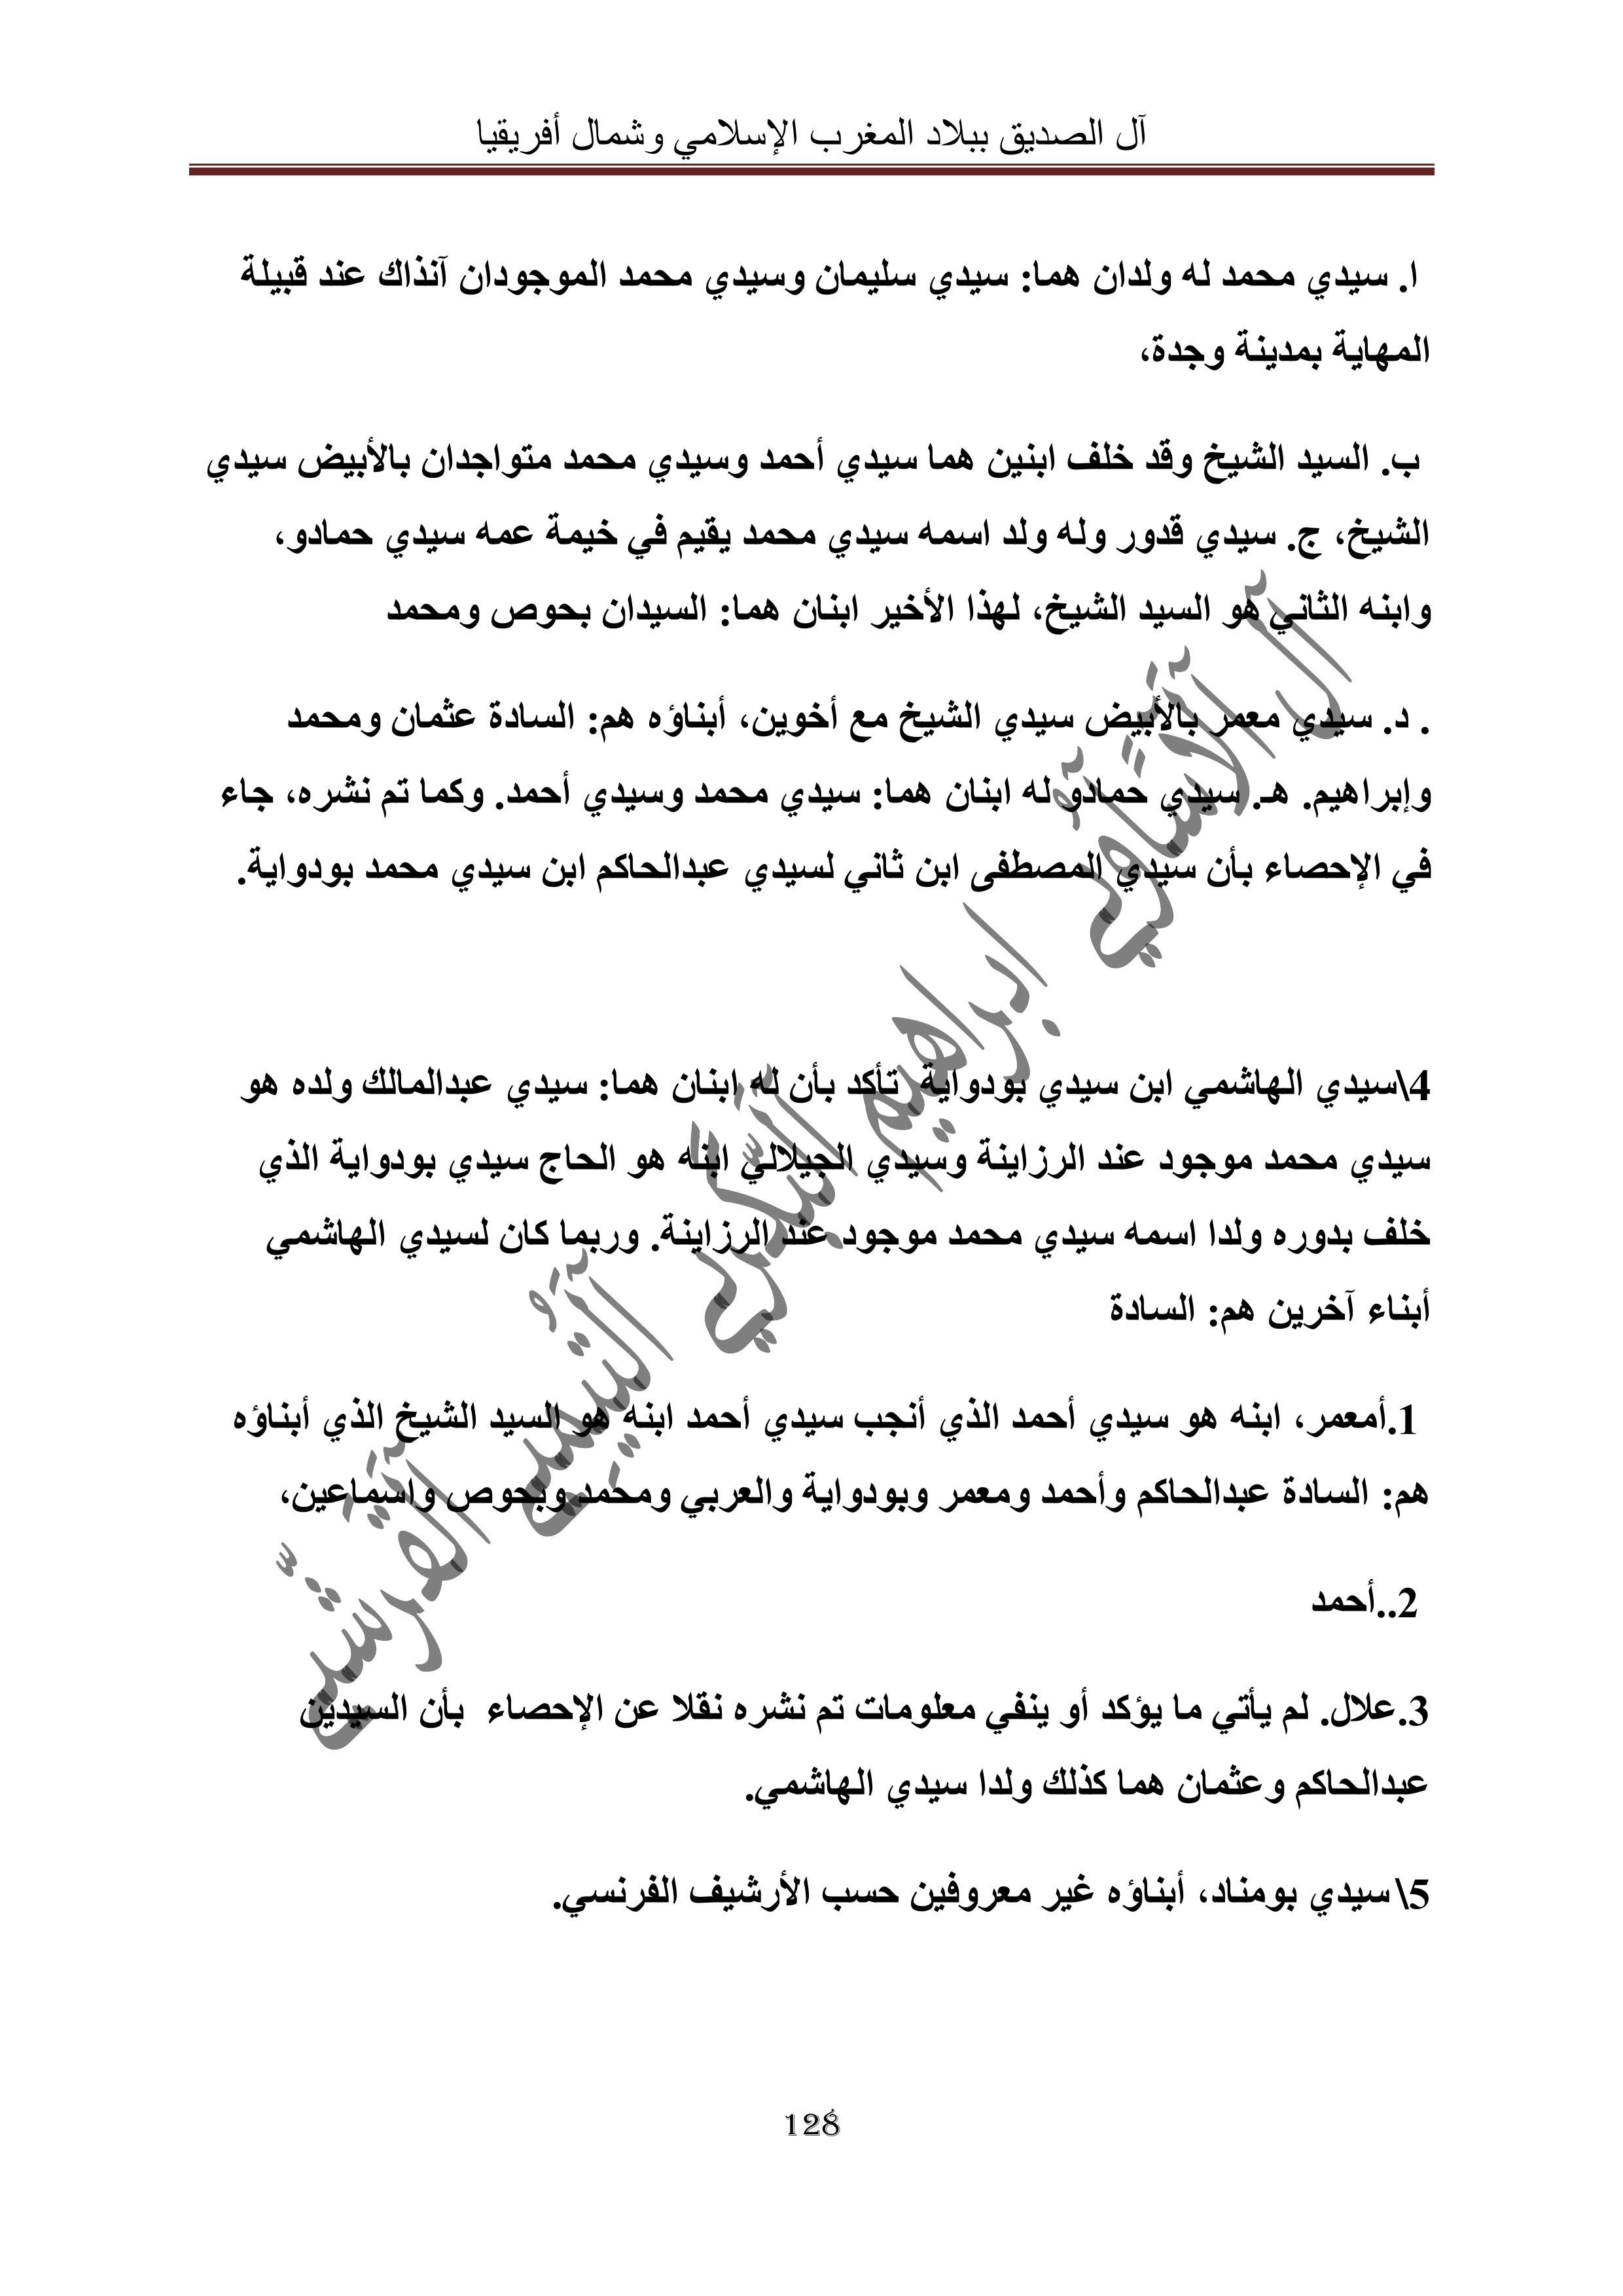 آل الصديق ببلاد المغرب الإسلامي وشمال أفريقيا
ا. سيدي محمد له ولدان هما: سيدي سليمان وسيدي محمد الموجودان آنذاك عند قبيلة
المهاية بمدينة وجدة،
ب. السيد الشيخ وقد خلف ابنين هما سيدي أحمد وسيدي محمد متواجدان بالأبيض سيدي
الشيخ، ج. سيدي قدور وله ولد اسمه سيدي محمد يقيم في خيمة عمه سيدي حمادو،
وابنه الثاني هو السيد الشيخ، لهذا الأخير ابنان هما: السيدان بحوص ومحمد
. د. سيدي معمر بالأبيض سيدي الشيخ مع أخوين، أبناؤه هم: السادة عثمان ومحمد
وإبراهيم. هـ. سيدي حمادو له ابنان هما: سيدي محمد وسيدي أحمد. وكما تم نشره، جاء
في الإحصاء بأن سيدي المصطفى ابن ثاني لسيدي عبدالحاكم ابن سيدي محمد بودواية.
4\سيدي الهاشمي ابن سيدي بودواية تأكد بأن له ابنان هما: سيدي عبدالمالك ولده هو
سيدي محمد موجود عند الرزاينة وسيدي الجيلالي ابنه هو الحاج سيدي بودواية الذي
خلف بدوره ولدا اسمه سيدي محمد موجود عند الرزاينة. وربما كان لسيدي الهاشمي
أبناء آخرين هم: السادة
1.أمعمر، ابنه هو سيدي أحمد الذي أنجب سيدي أحمد ابنه هو السيد الشيخ الذي أبناؤه
هم: السادة عبدالحاكم وأحمد ومعمر وبودواية والعربي ومحمد وبحوص واسماعين،
2..أحمد
3.علال. لم يأتي ما يؤكد أو ينفي معلومات تم نشره نقلا عن الإحصاء بأن السيدين
عبدالحاكم وعثمان هما كذلك ولدا سيدي الهاشمي.
5\ سيدي بومناد، أبناؤه غير معروفين حسب الأرشيف الفرنسي.
128